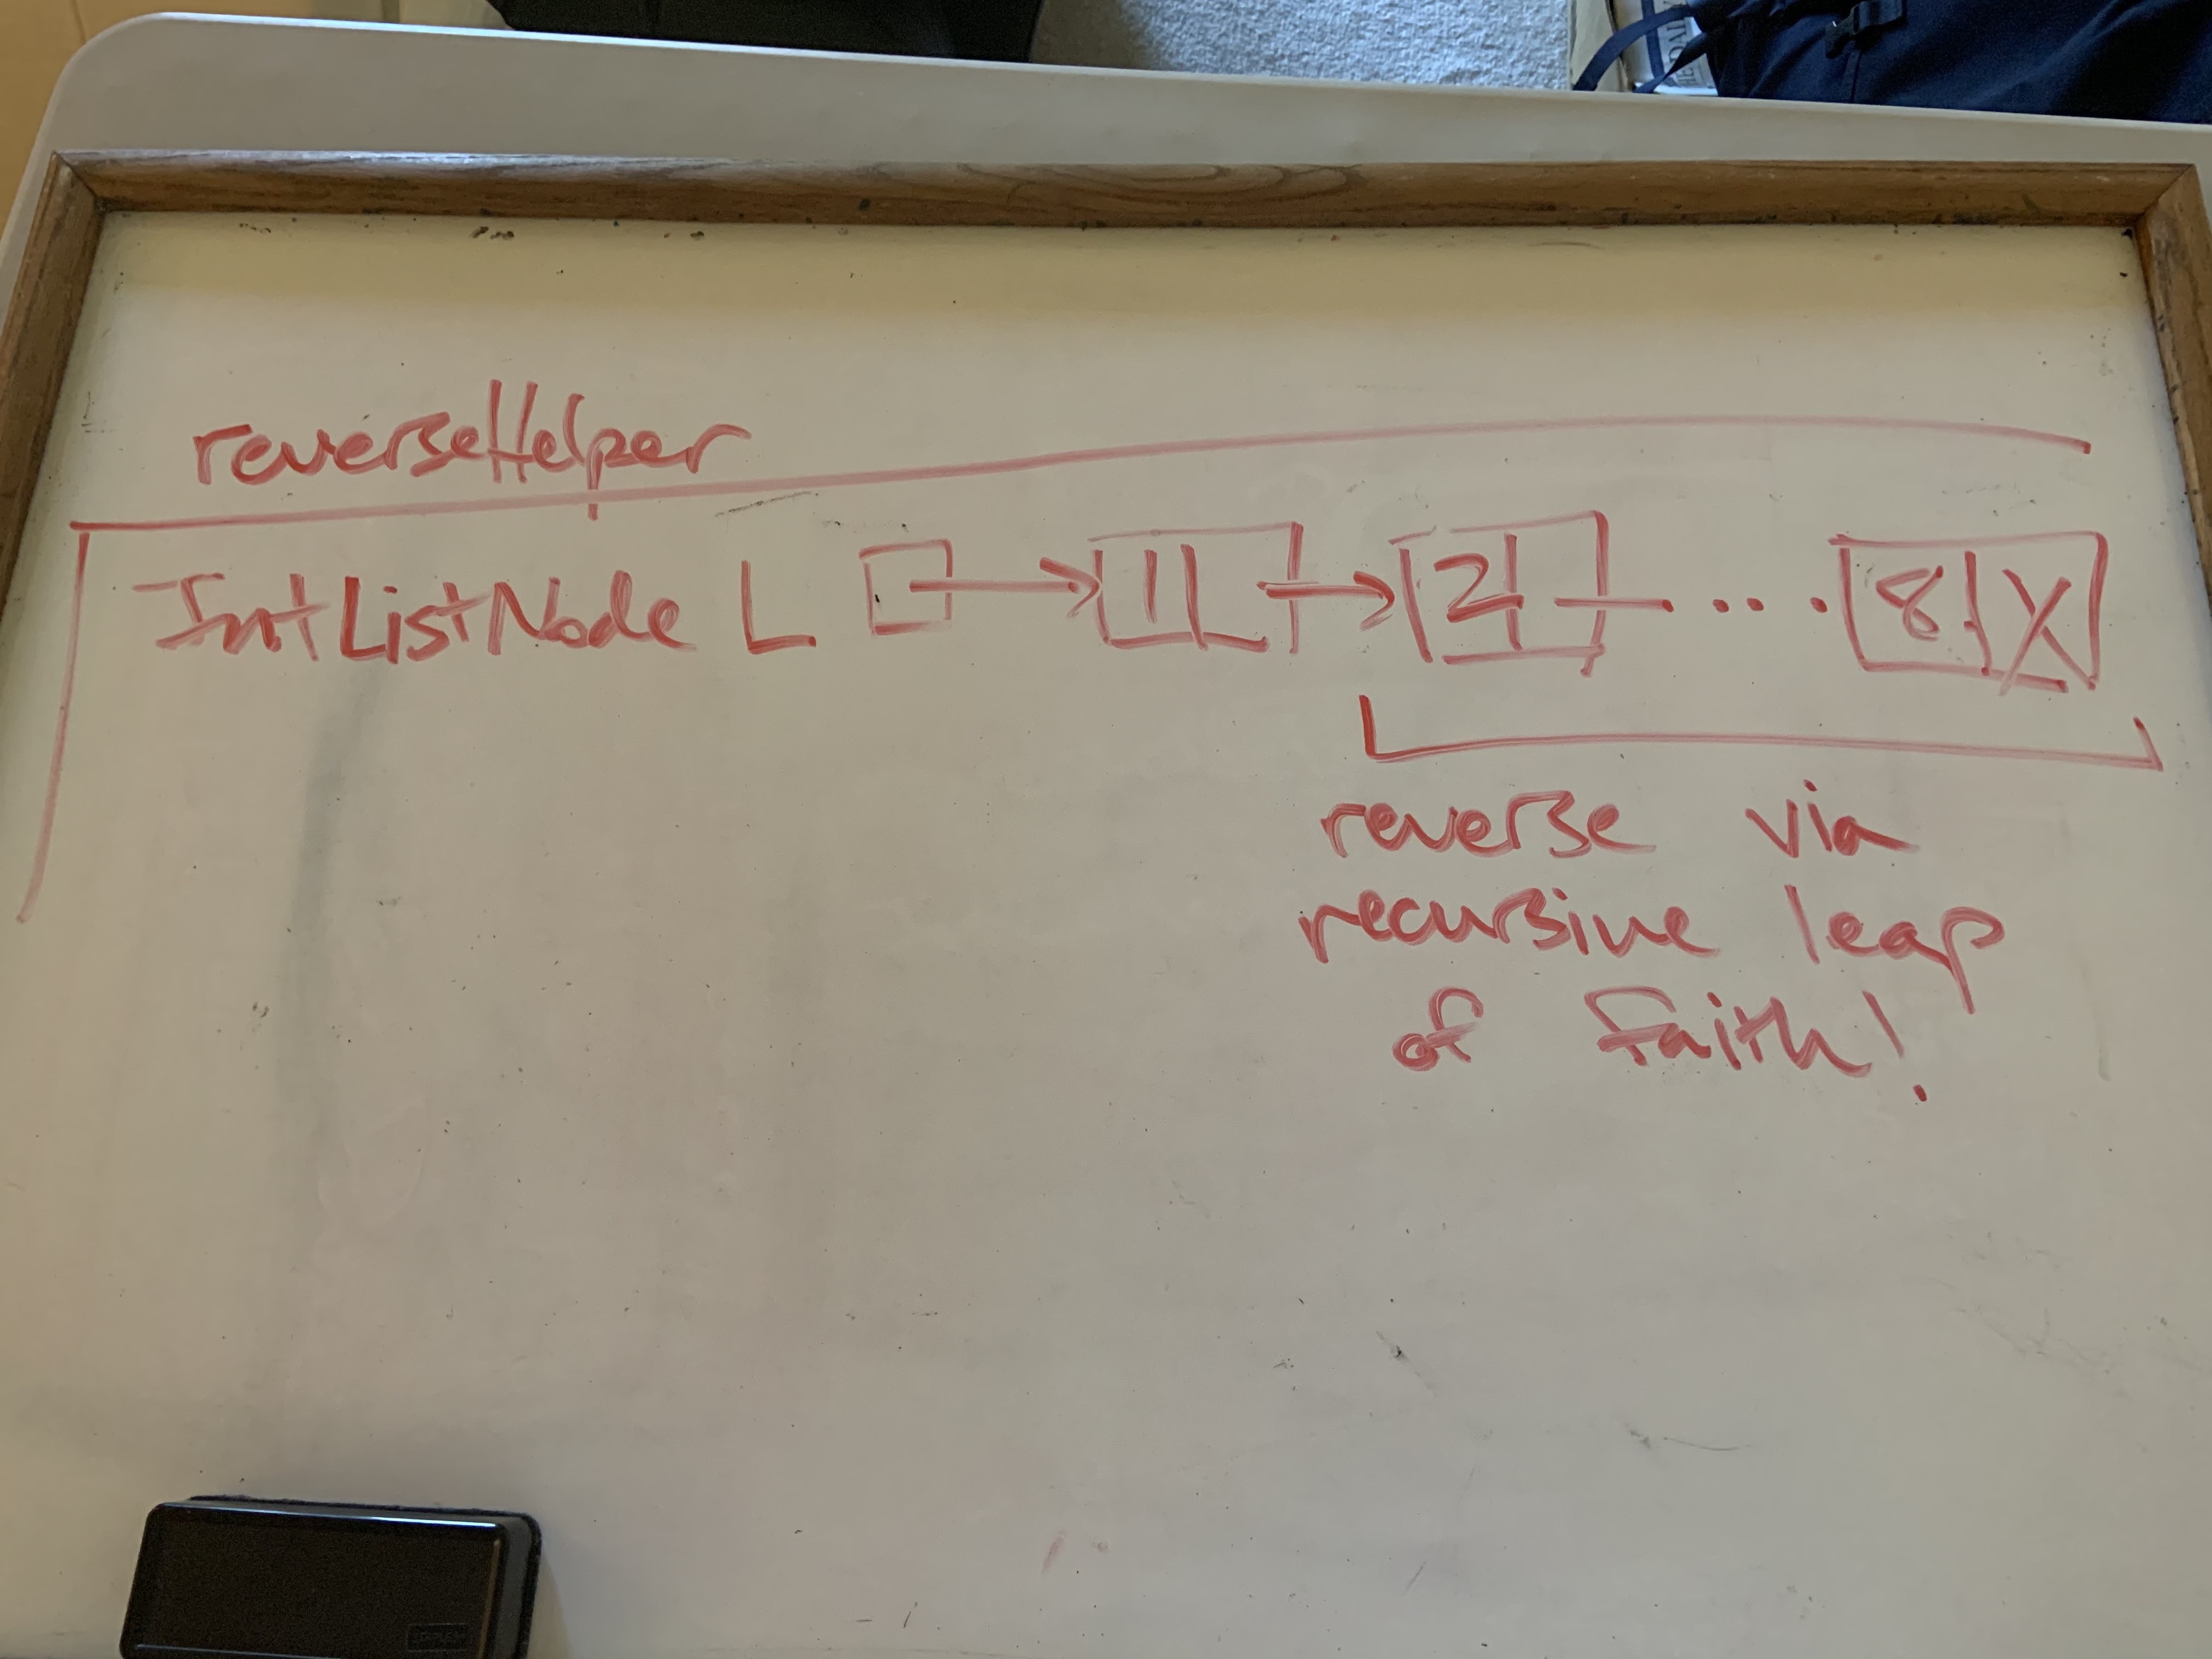 reverseHelper
IntListNode L 1 2 ... 8 X
reverse via
recursive leap
of faith!